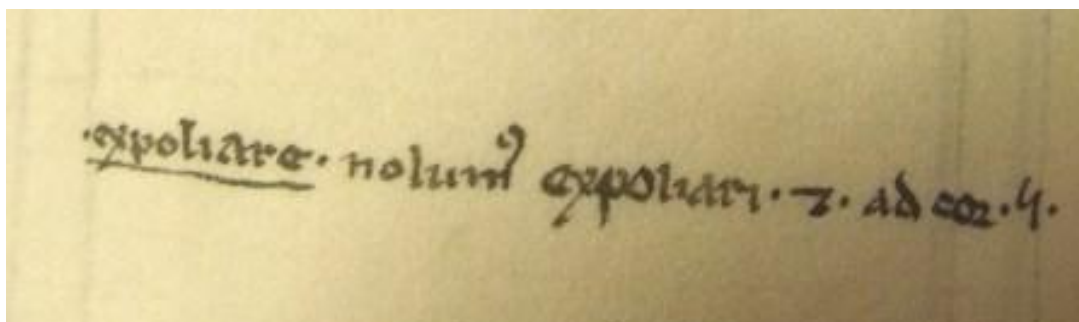 ·expoliare· nolumꝰ expoliari · 2 · ad cor · 5 ·